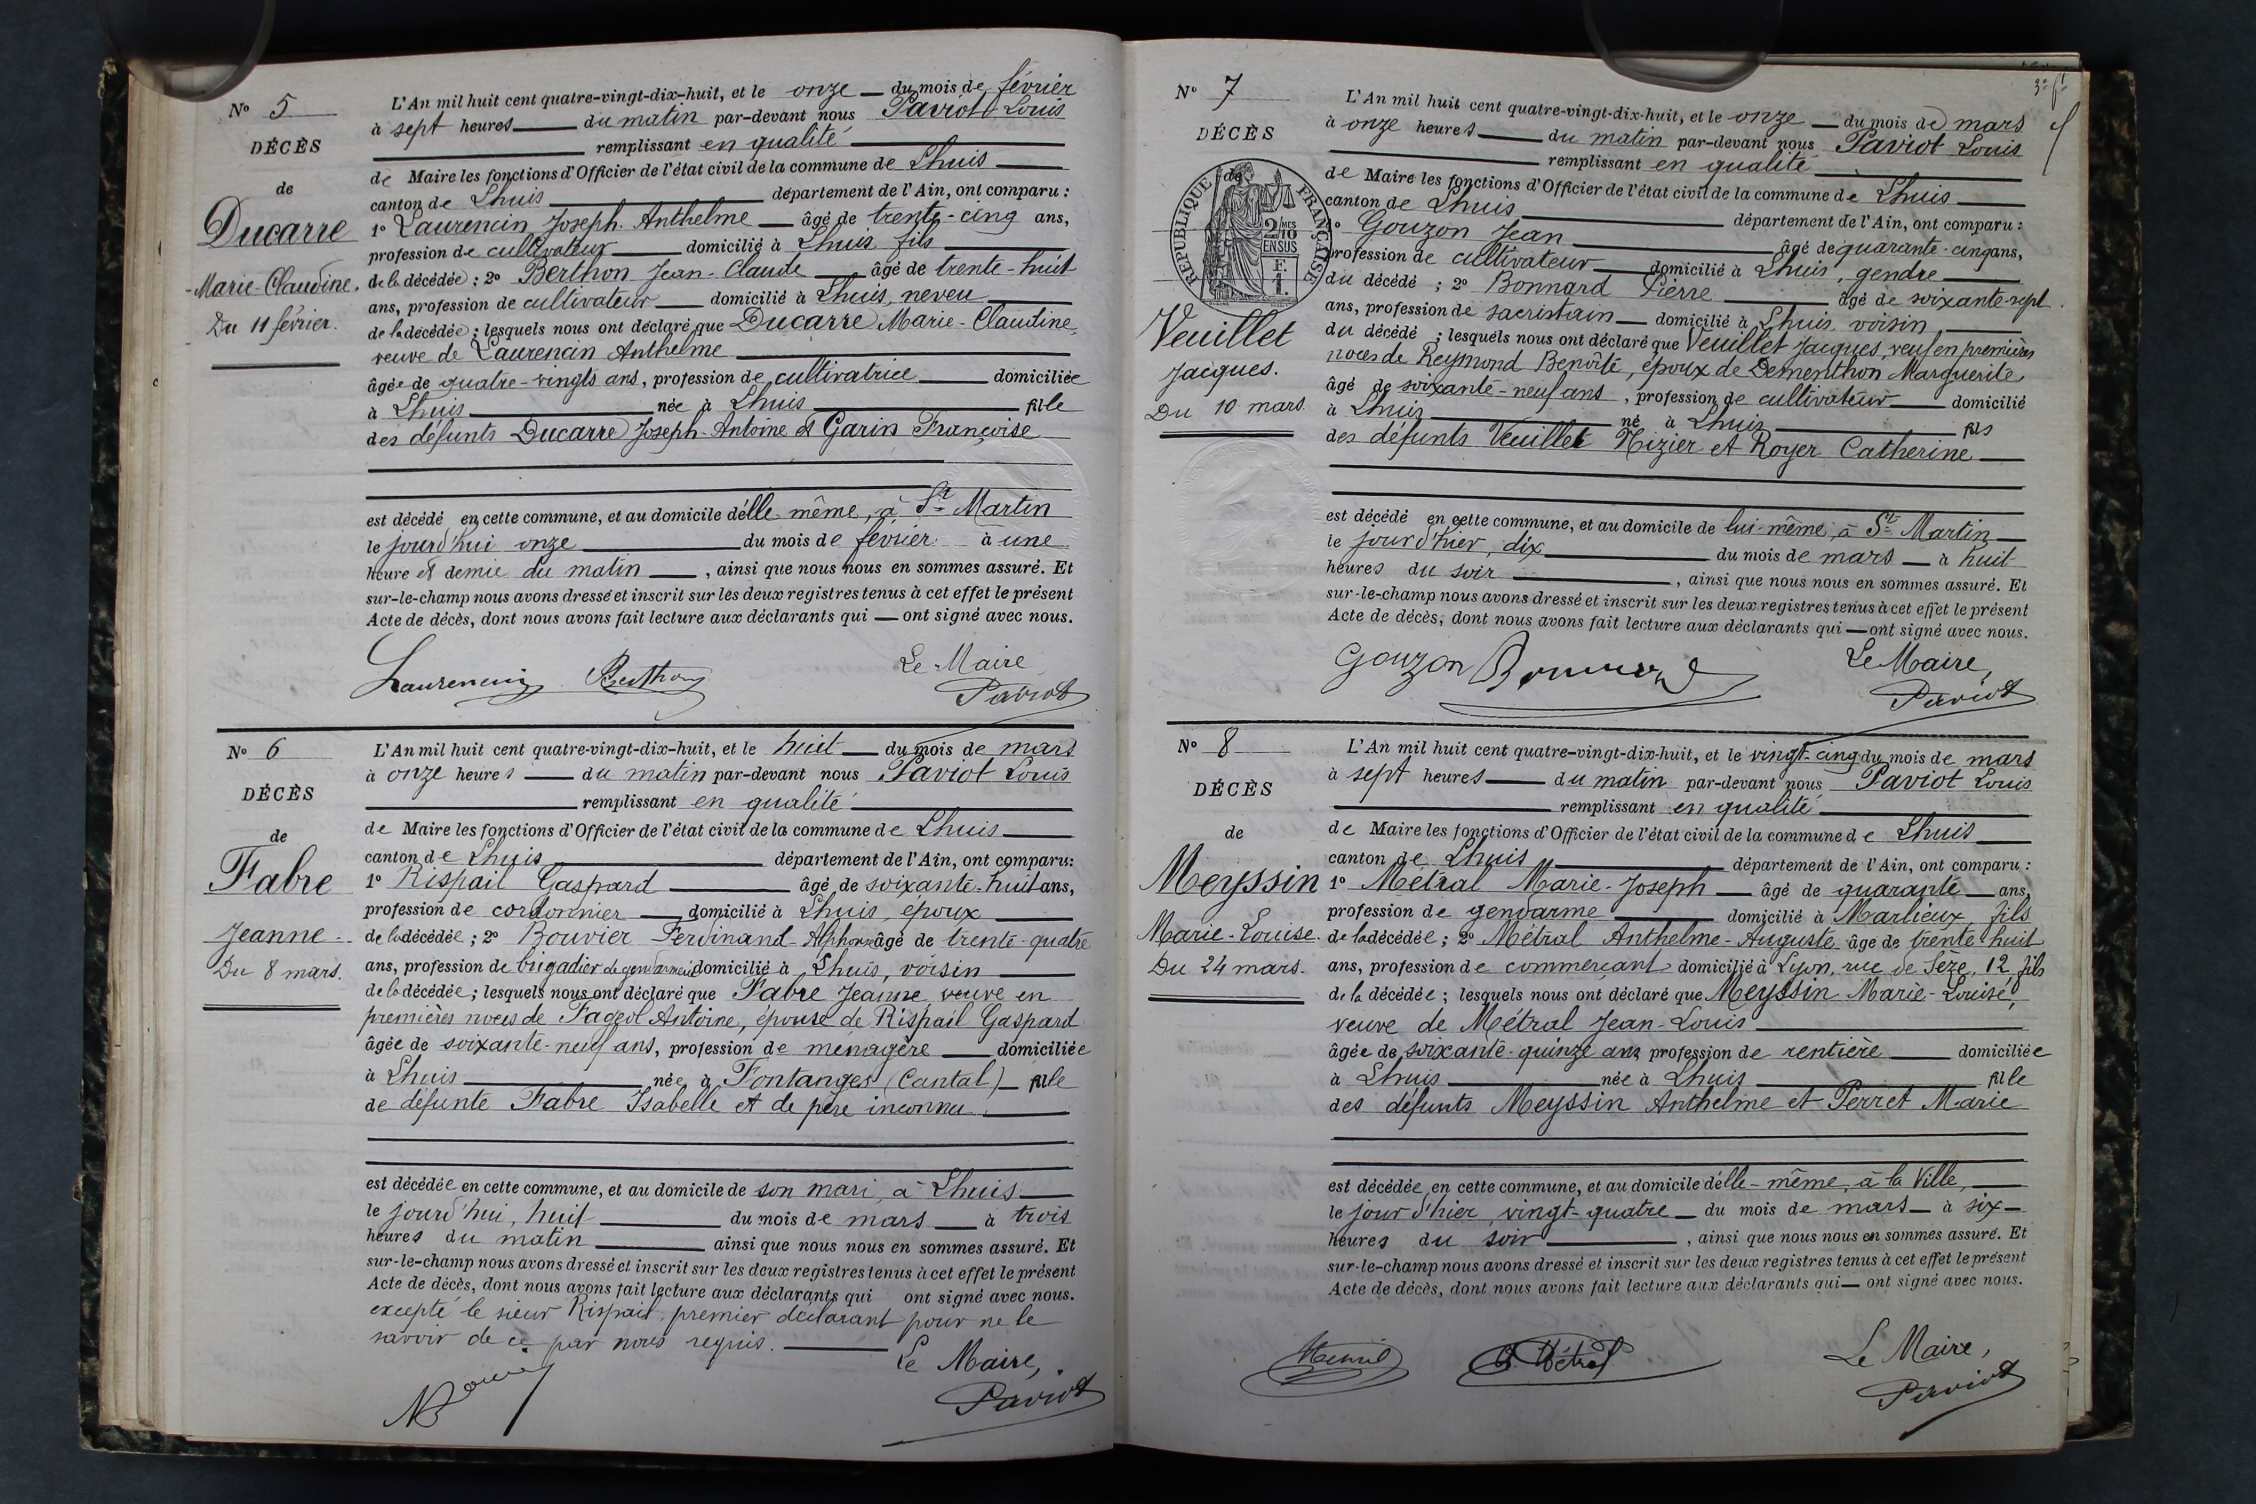 N° 5
DÉCÈS
de
Ducarre
Marie-Claudine.
Du 11 février.
L'An mil huit cent quatre-vingt-dix-huit, et le onze du mois de février
à sept heures du matin par-devant nous Paviot Louis
remplissant en qualité
de Maire les fonctions d'Officier de l'état civil de la commune de Lhuis
canton de Lhuis département de l'Ain, ont comparu :
1° Laurencin Joseph-Anthelme âgé de trente-cinq ans,
profession de cultivateur domicilié à Lhuis fils
de la décédée ; 2° Berthon Jean-Claude âgé de trente-huit
ans, profession de cultivateur domicilié à Lhuis, neveu
de la décédée ; lesquels nous ont déclaré que Ducarre Marie-Claudine,
veuve de Laurencin Anthelme
âgée de quatre-vingts ans, profession de cultivatrice domiciliée
à Lhuis née à Lhuis fille
des défunts Ducarre Joseph-Antoine et Garin Françoise
est décédé en cette commune, et au domicile d'elle-même, à St Martin
le jourd'hui onze du mois de février à une
heure et demie du matin, ainsi que nous nous en sommes assuré. Et
sur-le-champ nous avons dressé et inscrit sur les deux registres tenus à cet effet le présent
Acte de décès, dont nous avons fait lecture aux déclarants qui ont signé avec nous.
Laurencin Berthon Le Maire
Paviot
N° 6
DÉCÈS
de
Fabre
Jeanne
Du 8 mars.
L'An mil huit cent quatre-vingt-dix-huit, et le huit du mois de mars
à onze heures du matin par-devant nous Paviot Louis
remplissant en qualité
de Maire les fonctions d'Officier de l'état civil de la commune de Lhuis
canton de Lhuis département de l'Ain, ont comparu :
1° Rispail Gaspard âgé de soixante-huit ans,
profession de cordonnier domicilié à Lhuis, époux
de la décédée ; 2° Bouvier Ferdinand-Alphonse âgé de trente-quatre
ans, profession de brigadier de gendarmerie domicilié à Lhuis, voisin
de la décédée ; lesquels nous ont déclaré que Fabre Jeanne veuve en
premières noces de Antoine, épouse de Rispail Gaspard
âgée de soixante-neuf ans, profession de ménagère domiciliée
à Lhuis née à Fontanges (Cantal) fille
de défunte Fabre Isabelle et de père inconnu.
est décédée en cette commune, et au domicile de son mari, à Lhuis
le jourd'hui, huit du mois de mars à trois
heures du matin ainsi que nous nous en sommes assuré. Et
sur-le-champ nous avons dressé et inscrit sur les deux registres tenus à cet effet le présent
Acte de décès, dont nous avons fait lecture aux déclarants qui ont signé avec nous.
excepté le sieur Rispail, premier déclarant pour ne le
savoir de ce par nous requis.
Le Maire,
Paviot
3e ft
N° 7
DÉCÈS
de
RÉPUBLIQUE FRANÇAISE
2/10MES
EN SUS
F.
1.
Veuillet
Jacques.
Du 10 mars.
L'An mil huit cent quatre-vingt-dix-huit, et le onze du mois de mars
à onze heures du matin par-devant nous Paviot Louis
remplissant en qualité
de Maire les fonctions d'Officier de l'état civil de la commune de Lhuis
canton de Lhuis département de l'Ain, ont comparu :
1° Gouzon Jean âgé de quarante-cinq ans,
profession de cultivateur domicilié à Lhuis, gendre
du décédé ; 2° Bonnard Pierre âgé de soixante-sept
ans, profession de sacristain domicilié à Lhuis, voisin
du décédé ; lesquels nous ont déclaré que Veuillet Jacques, veuf en premières
noces de Reymond Benoîte, époux de Dementhon Marguerite,
âgé de soixante-neuf ans, profession de cultivateur domicilié
à Lhuis né à Lhuis fils
des défunts Veuillet Nizier et Royer Catherine
est décédé en cette commune, et au domicile de lui-même, à St Martin
le jour d'hier, dix du mois de mars à huit
heures du soir, ainsi que nous nous en sommes assuré. Et
sur-le-champ nous avons dressé et inscrit sur les deux registres tenus à cet effet le présent
Acte de décès, dont nous avons fait lecture aux déclarants qui ont signé avec nous.
Gouzon Bonnard Le Maire,
Paviot
N° 8
DÉCÈS
de
Meyssin
Marie-Louise.
Du 24 mars.
L'An mil huit cent quatre-vingt-dix-huit, et le vingt-cinq du mois de mars
à sept heures du matin par-devant nous Paviot Louis
remplissant en qualité
de Maire les fonctions d'Officier de l'état civil de la commune de Lhuis
canton de Lhuis département de l'Ain, ont comparu :
1° Métral Marie-Joseph âgé de quarante ans,
profession de gendarme domicilié à Marlieux, fils
de la décédée ; 2° Métral Anthelme-Auguste âgé de trente-huit
ans, profession de commerçant domicilié à Lyon, rue de Sèze, 12, fils
de la décédée ; lesquels nous ont déclaré que Meyssin Marie-Louise,
veuve de Métral Jean-Louis
âgée de soixante-quinze ans profession de rentière domiciliée
à Lhuis née à Lhuis fille
des défunts Meyssin Anthelme et Perret Marie
est décédée en cette commune, et au domicile d'elle-même, à la Ville,
le jour d'hier, vingt-quatre du mois de mars à six
heures du soir, ainsi que nous nous en sommes assuré. Et
sur-le-champ nous avons dressé et inscrit sur les deux registres tenus à cet effet le présent
Acte de décès, dont nous avons fait lecture aux déclarants qui ont signé avec nous.
Métral Le Maire,
Paviot